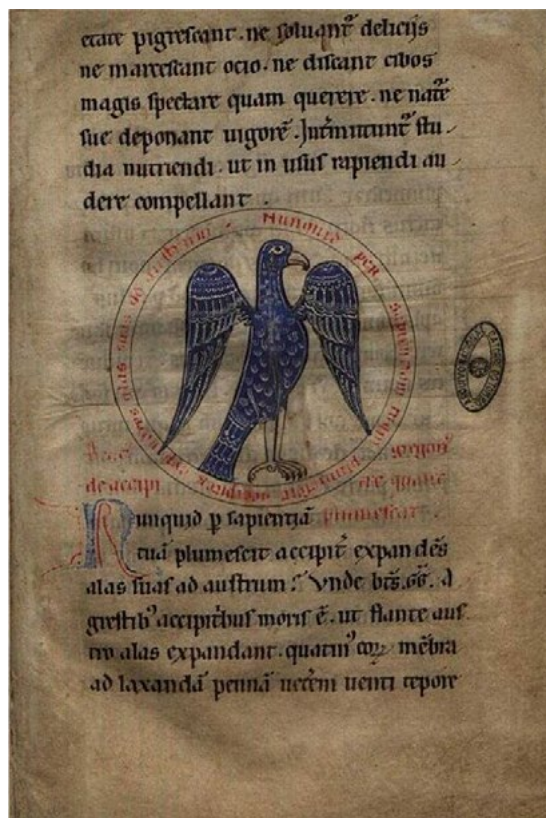 etate pigrescant. ne soluant᷑ deliciis
ne marcescant ocio. ne discant cibos
magis spectare quam querere. ne nat᷑e
sue deponant uigorē. Int᷑mittunt᷑ stu-
dia nutriendi. ut in usus rapiendi au-
dere compellant.
Nunquid per sapientiam tuam plumescit accipiter expandens alas suas ad austrum
de accipi
plumescat.
Nunquid ꝑ sapientiā
tuā plumescit accipit᷑ expandēs
alas suas ad austrum? Vnde bt̄s. GG. A
grestibꝰ accipit᷑bus moris ē. ut flante aus
tro alas expandant. quatinꝰ eoꝝ mēbra
ad laxandā pennā uet᷑em uenti tepore